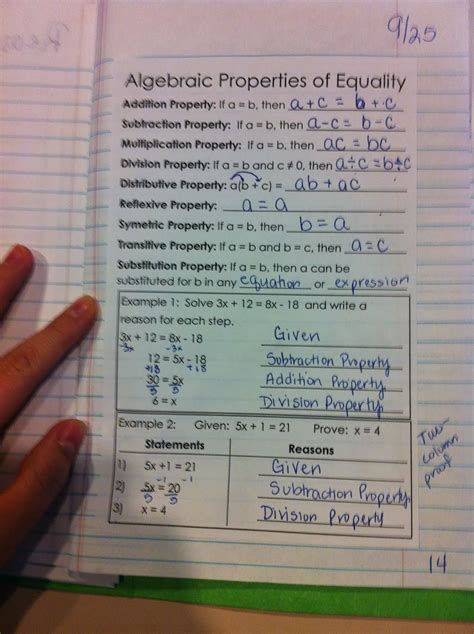 9/25
Algebraic Properties of Equality
Addition Property: If a = b, then a + c = b + c
Subtraction Property: If a = b, then a - c = b - c
Multiplication Property: If a = b, then ac = bc
Division Property: If a = b and c ≠ 0, then a ÷ c = b ÷ c
Distributive Property: a(b + c) = ab + ac
Reflexive Property: a = a
Symetric Property: If a = b, then b = a
Transitive Property: If a = b and b = c, then a = c
Substitution Property: If a = b, then a can be
substituted for b in any equation or expression
Example 1: Solve 3x + 12 = 8x - 18 and write a
reason for each step.
3x + 12 = 8x - 18 Given
-3x -3x
12 = 5x - 18 Subtraction Property
+18 +18
30 = 5x Addition Property
5 5
6 = x Division Property
Example 2: Given: 5x + 1 = 21 Prove: x = 4
Two-
column
proof
Statements Reasons
1) 5x +1 = 21 Given
-1 -1
2) 5x = 20 Subtraction Property
5 5
3) x = 4 Division Property
14